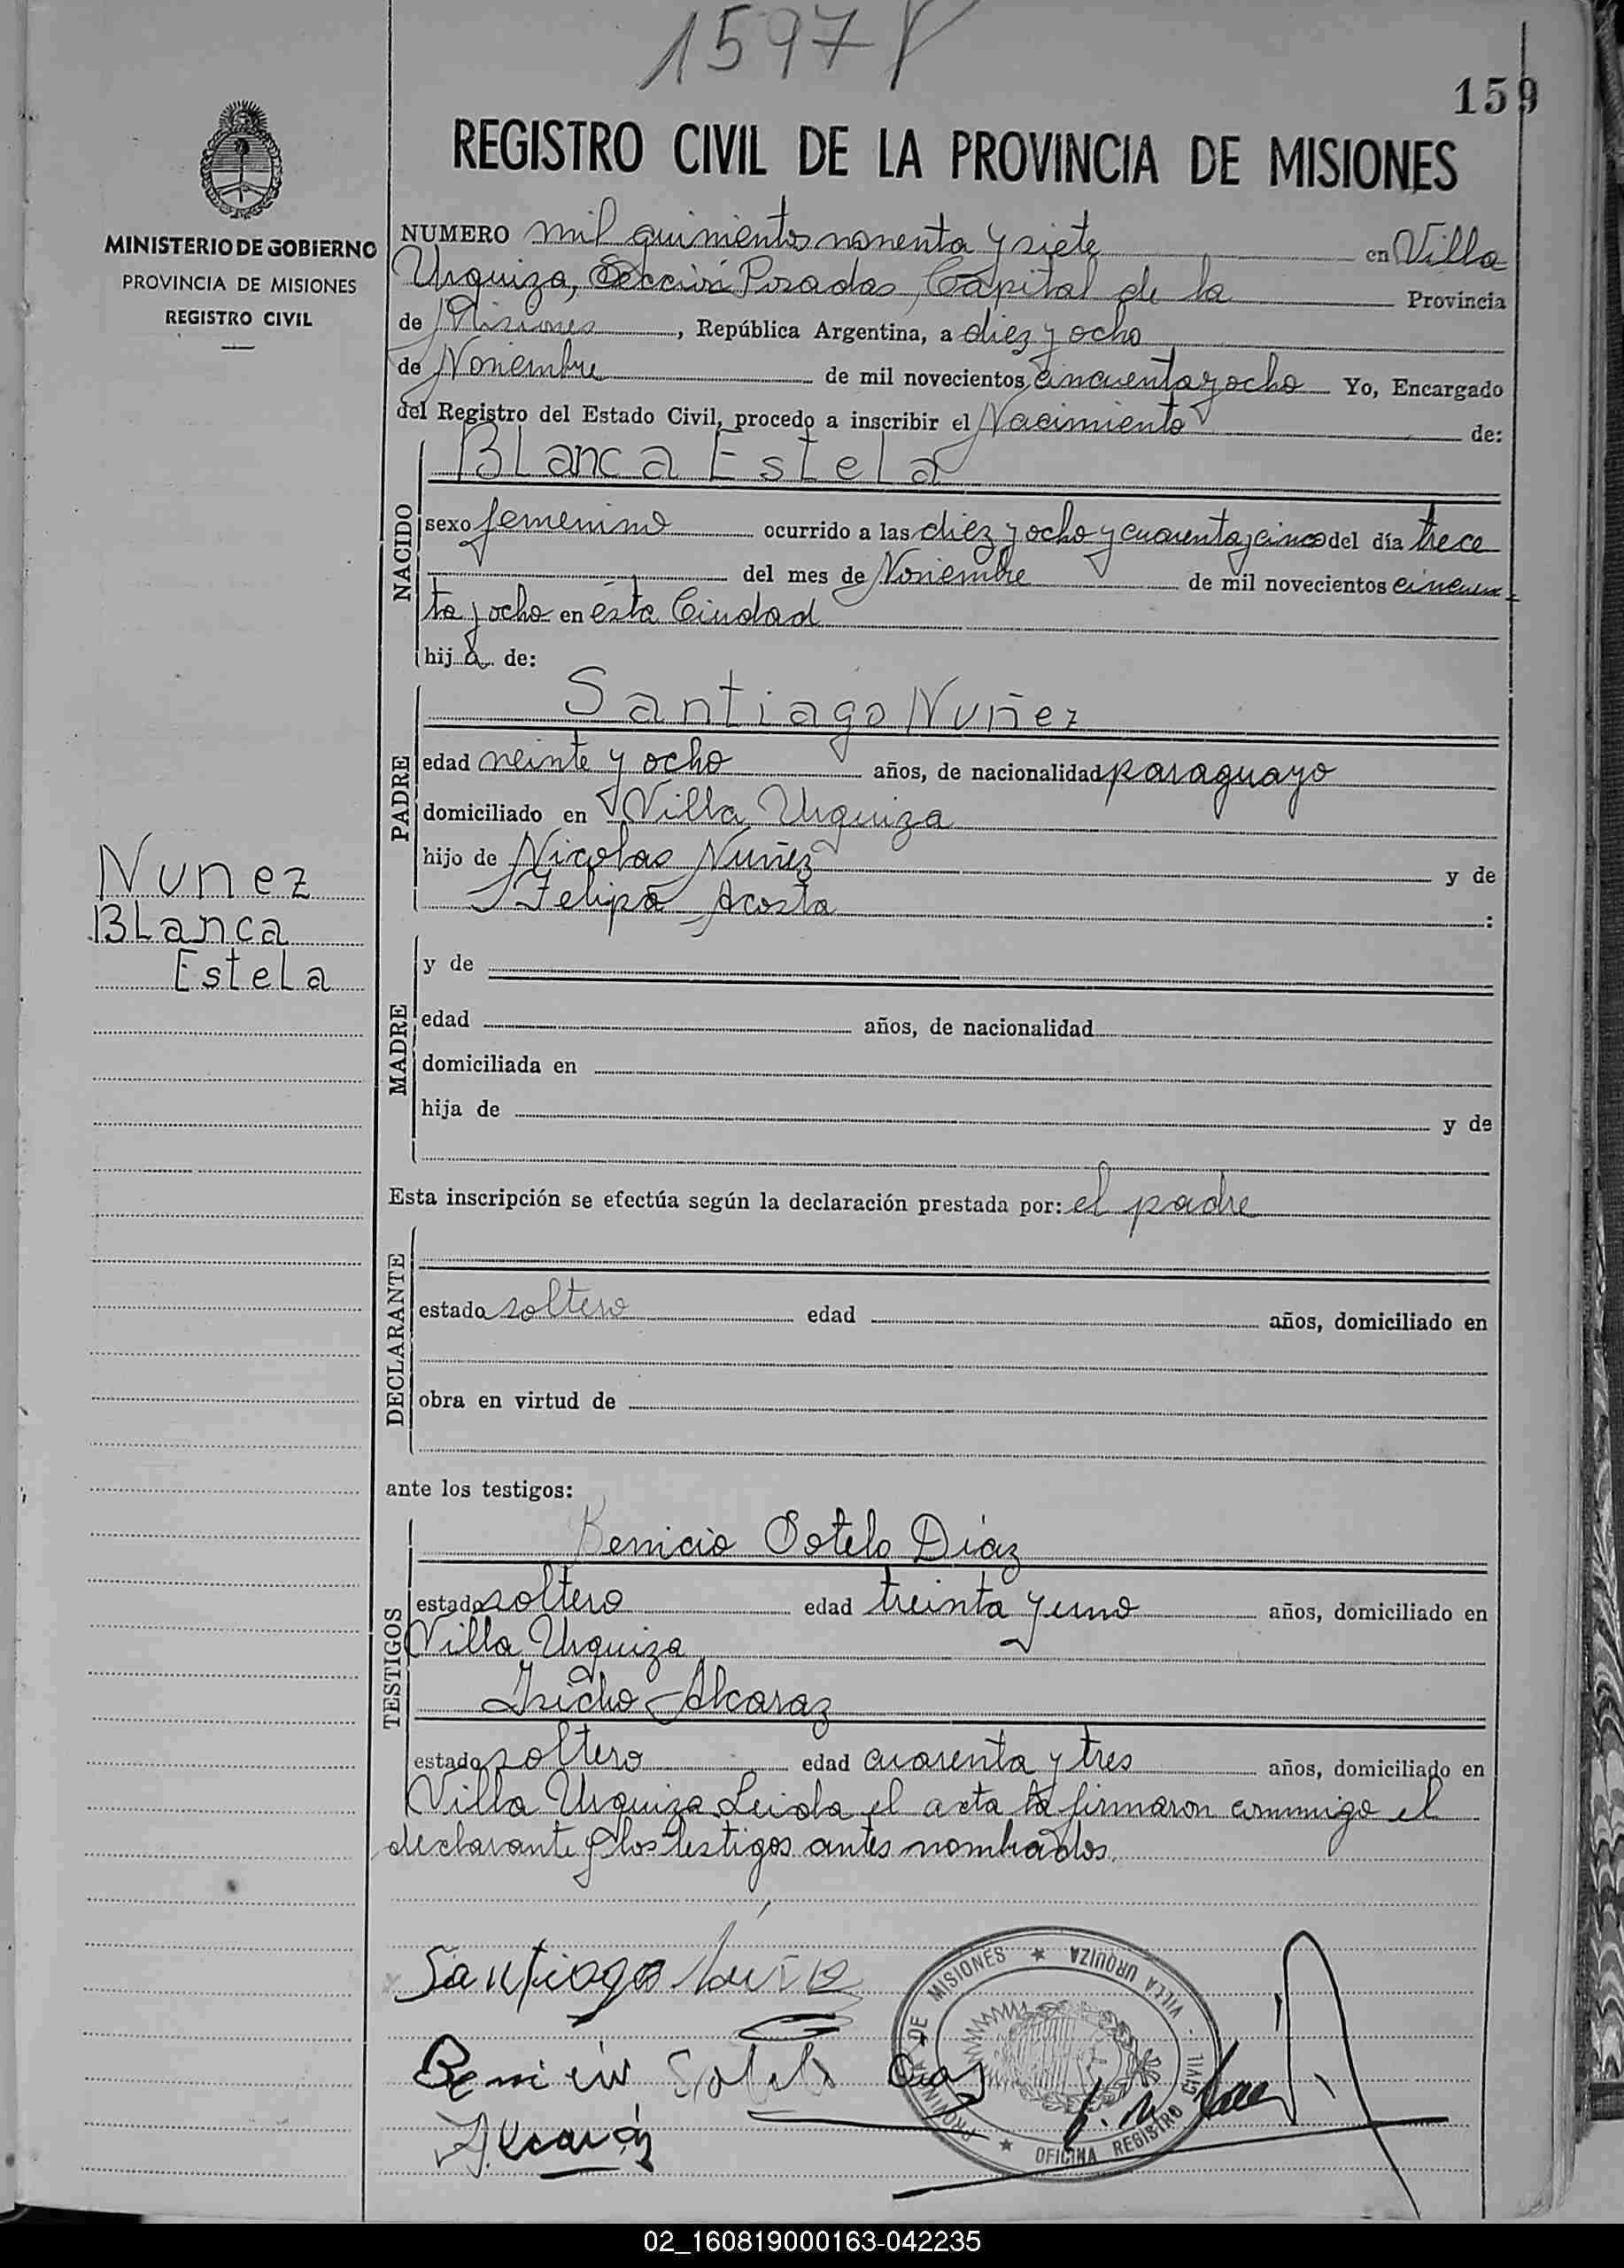 1597
159
REGISTRO CIVIL DE LA PROVINCIA DE MISIONES
MINISTERIO DE GOBIERNO
PROVINCIA DE MISIONES
REGISTRO CIVIL
NUMERO mil quinientos noventa y siete en Villa
Urquiza, Sección Posadas, Capital de la Provincia
de Misiones, República Argentina, a diez y ocho
de Noviembre de mil novecientos cincuenta y ocho Yo, Encargado
del Registro del Estado Civil, procedo a inscribir el Nacimiento de:
NACIDO
Blanca Estela
sexo femenino ocurrido a las diez y ocho y cuarenta y cinco del día trece
del mes de Noviembre de mil novecientos cincuen
ta y ocho en ésta Ciudad
hija de:
PADRE
Santiago Nuñez
edad veinte y ocho años, de nacionalidad paraguayo
domiciliado en Villa Urquiza
hijo de Nicolas Nuñez y de
Felipa Acosta :
Nunez
Blanca
Estela
MADRE
y de
edad años, de nacionalidad
domiciliada en
hija de y de
Esta inscripción se efectúa según la declaración prestada por: el padre
DECLARANTE
estado soltero edad años, domiciliado en
obra en virtud de
ante los testigos:
TESTIGOS
Benicio Sotelo Diaz
estado soltero edad treinta y uno años, domiciliado en
Villa Urquiza
Alcaraz
estado soltero edad cuarenta y tres años, domiciliado en
Villa Urquiza. Leida el acta la firmaron conmigo el
declarante y los testigos antes nombrados.
Santiago Nuñez
Benicio Sotelo Diaz
Alcaraz
PROVINCIA DE MISIONES ★ VILLA URQUIZA - OFICINA REGISTRO CIVIL ★
02_160819000163-042235